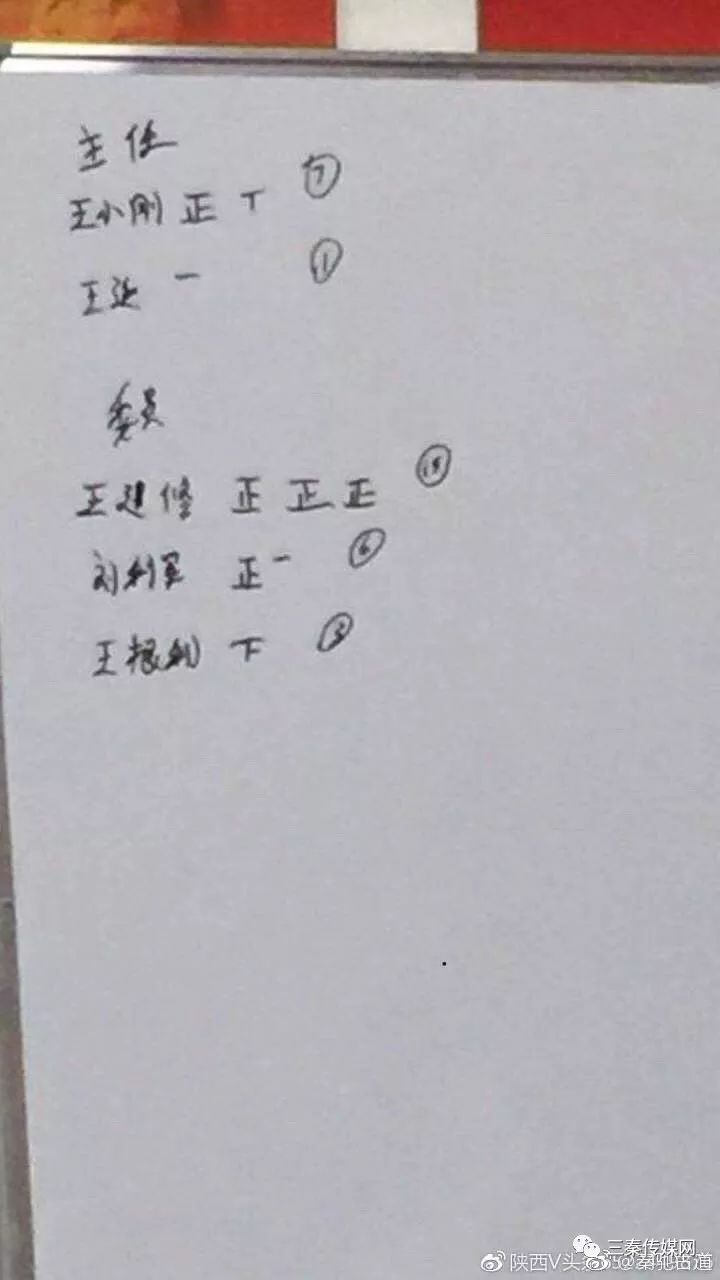 主任
王小刚 正 丅 ⑦
王 一 ①
委员
王建修 正 正 正 ⑮
刘利军 正 一 ⑥
王根利 下 ③
三秦传媒网
陕西V头条 @秦驰古道